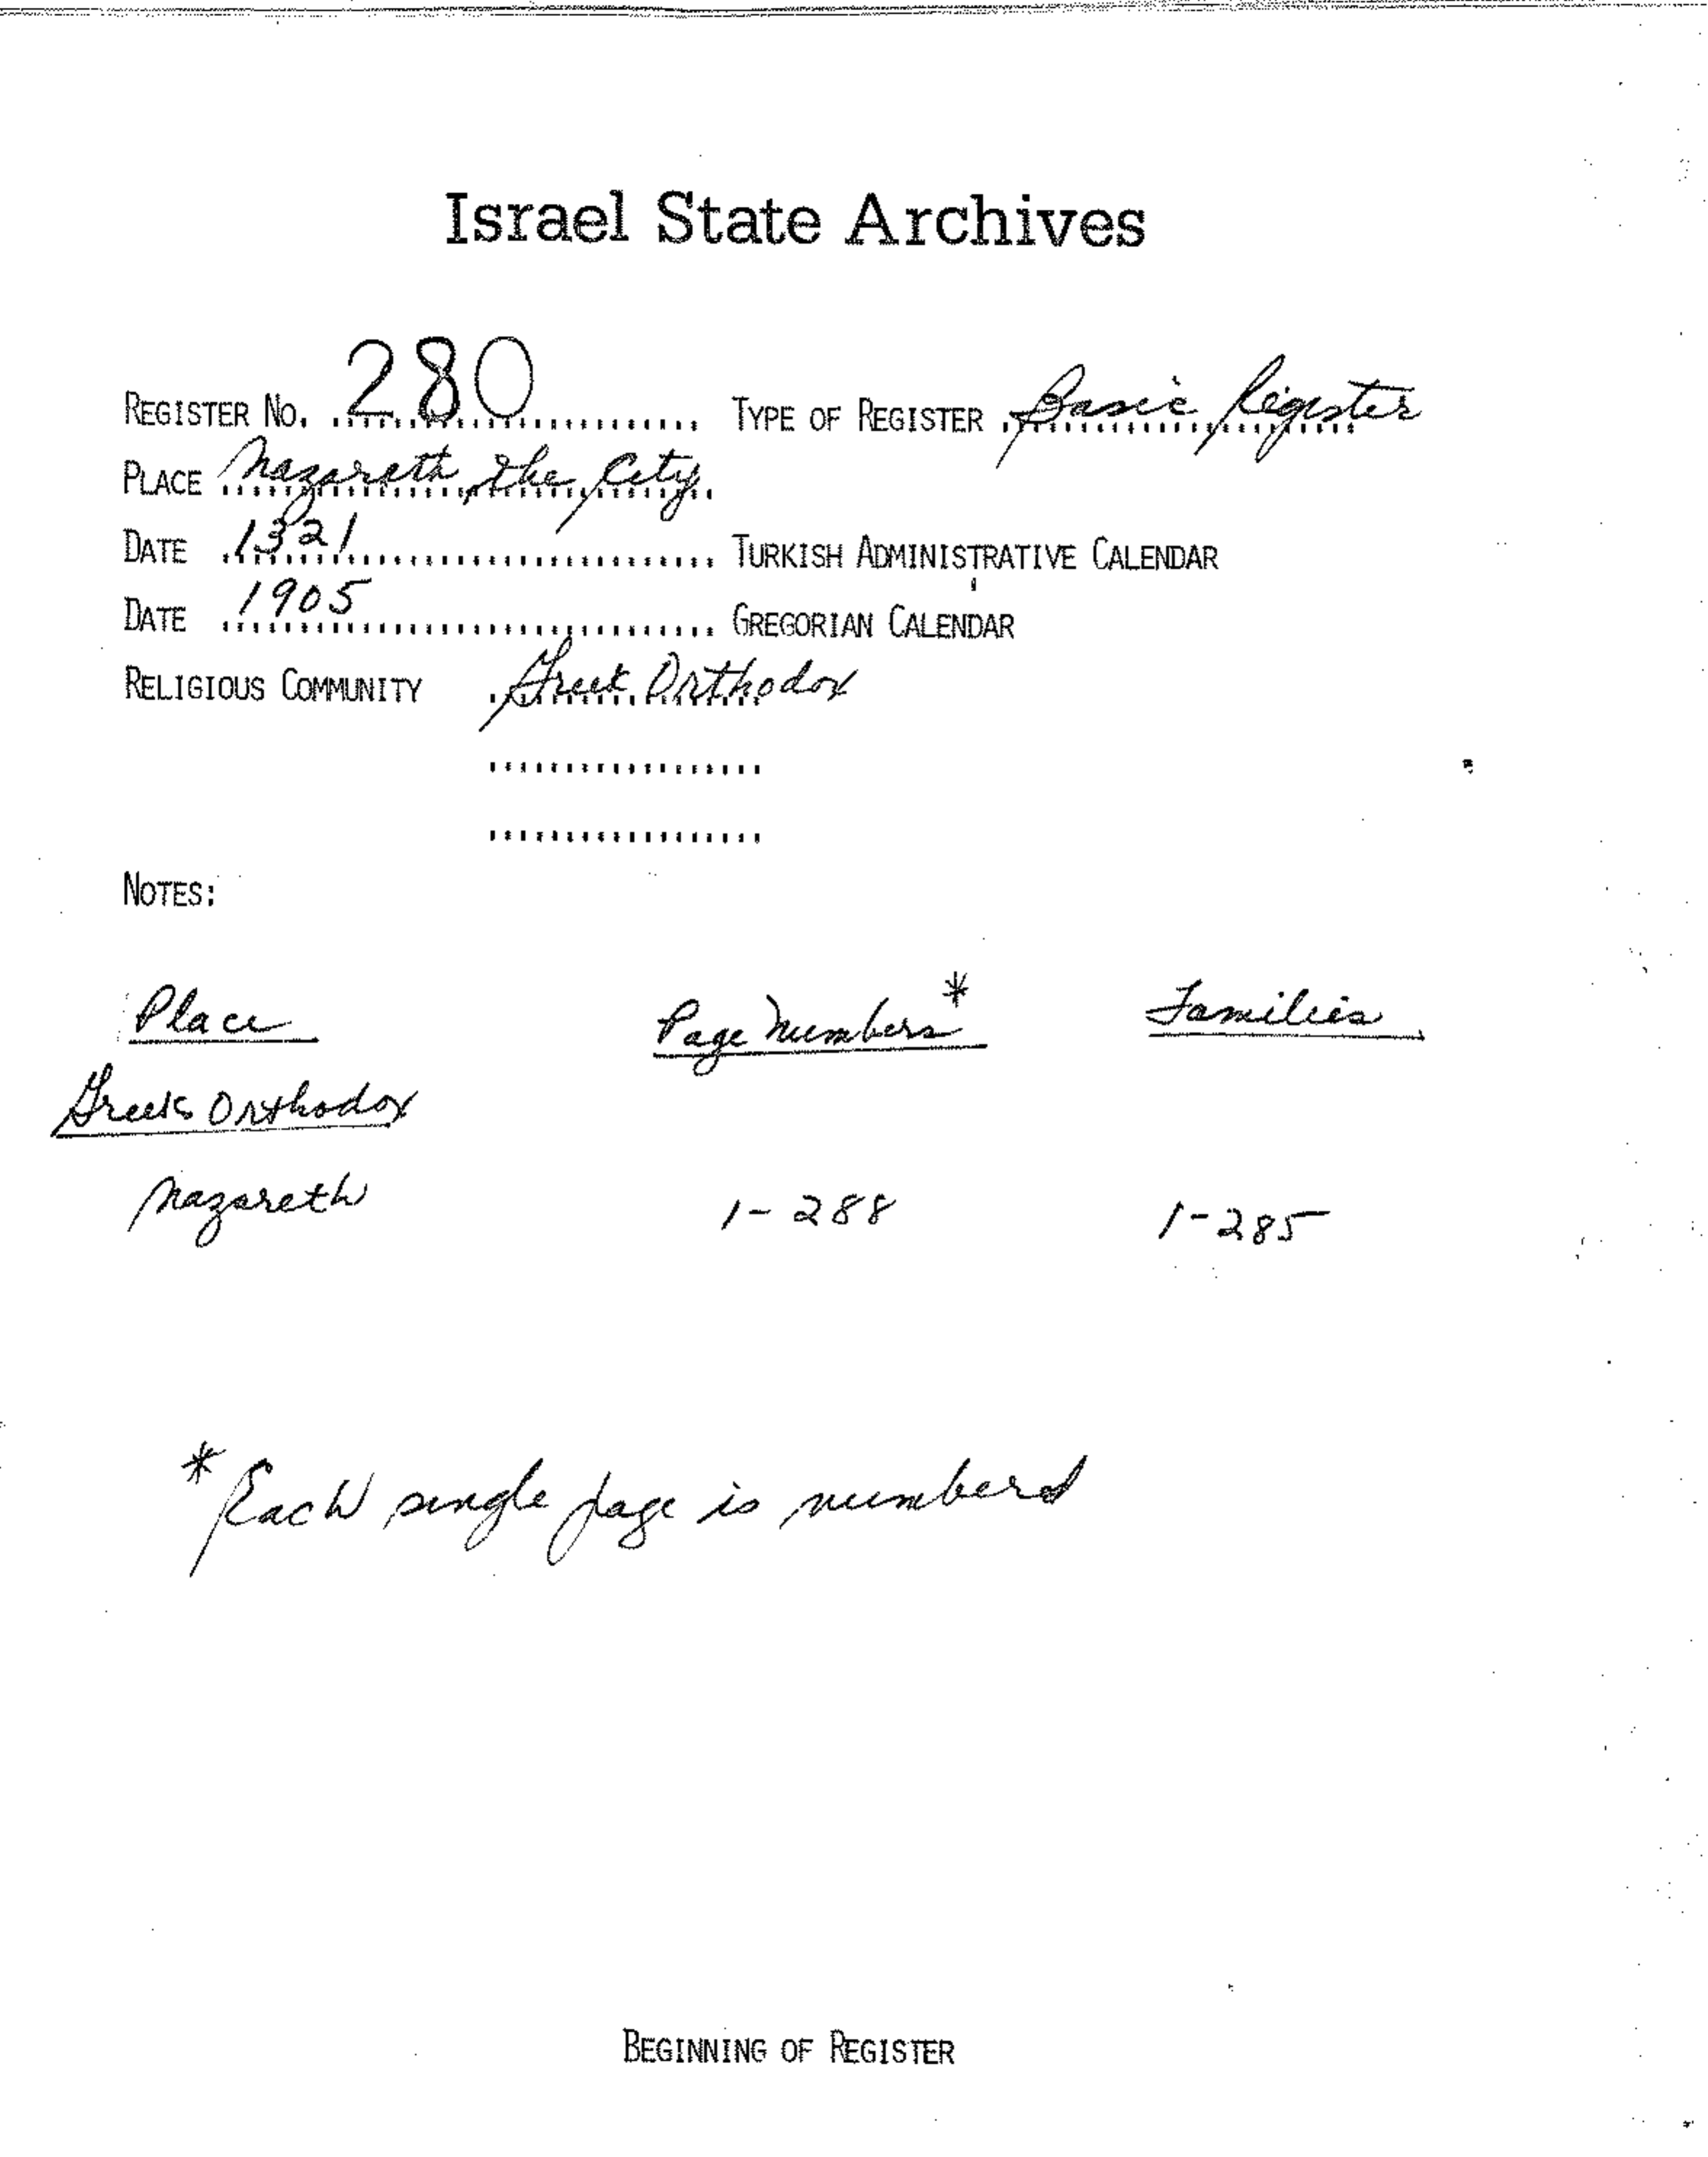 Israel State Archives
REGISTER NO. 280 TYPE OF REGISTER Basic Register
PLACE Nazareth, the City
DATE 1321 TURKISH ADMINISTRATIVE CALENDAR
DATE 1905 GREGORIAN CALENDAR
RELIGIOUS COMMUNITY Greek Orthodox
NOTES:
Place Page Numbers* Families
Greek Orthodox
Nazareth 1-288 1-285
* Each single page is numbered
BEGINNING OF REGISTER